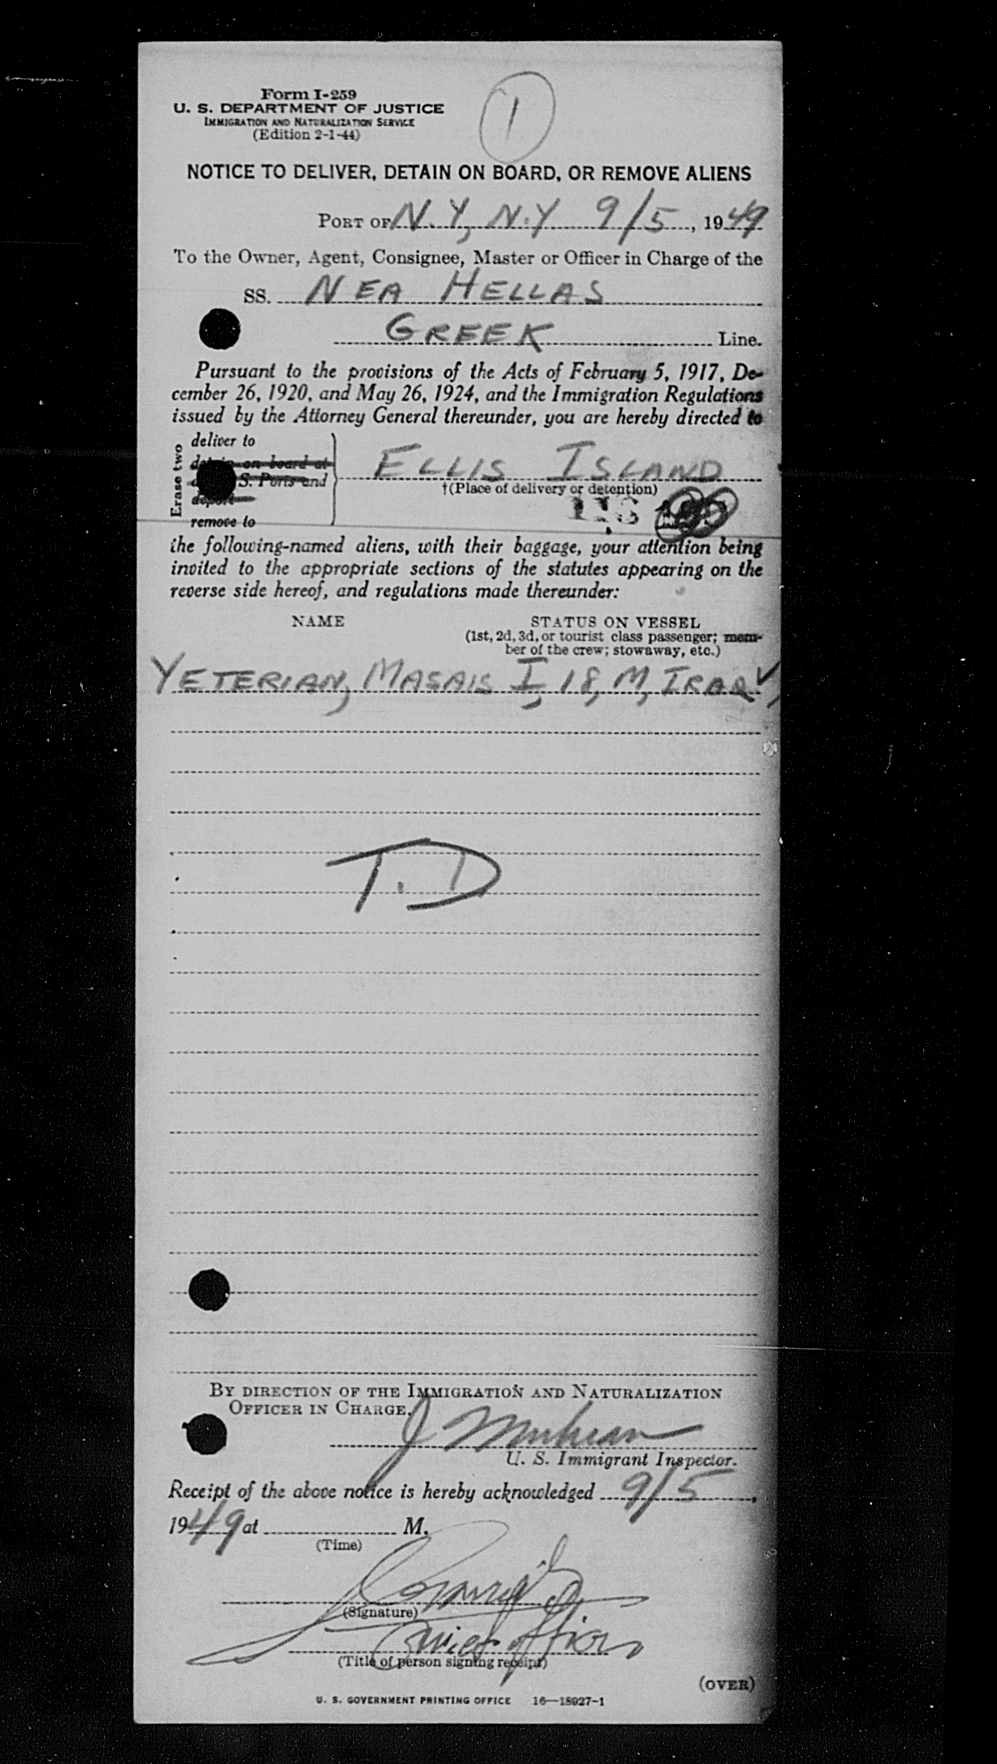 Form I-259
U. S. DEPARTMENT OF JUSTICE
IMMIGRATION AND NATURALIZATION SERVICE
(Edition 2-1-44)
1
NOTICE TO DELIVER, DETAIN ON BOARD, OR REMOVE ALIENS
PORT OF N.Y, N.Y 9/5, 1949
To the Owner, Agent, Consignee, Master or Officer in Charge of the
SS. NEA HELLAS
GREEK Line.
Pursuant to the provisions of the Acts of February 5, 1917, De-
cember 26, 1920, and May 26, 1924, and the Immigration Regulations
issued by the Attorney General thereunder, you are hereby directed to
Erase two
deliver to
detain on board at
S. Ports and
deport
remove to
ELLIS ISLAND
†(Place of delivery or detention)
the following-named aliens, with their baggage, your attention being
invited to the appropriate sections of the statutes appearing on the
reverse side hereof, and regulations made thereunder:
NAME STATUS ON VESSEL
(1st, 2d, 3d, or tourist class passenger; mem-
ber of the crew; stowaway, etc.)
YETERIAN, MASAIS I, 18, M, IRAQ ✓
T.D
BY DIRECTION OF THE IMMIGRATION AND NATURALIZATION
OFFICER IN CHARGE.
J
U. S. Immigrant Inspector.
Receipt of the above notice is hereby acknowledged 9/5,
1949 at M.
(Time)
(Signature)
Chief officer
(Title of person signing receipt)
(OVER)
U. S. GOVERNMENT PRINTING OFFICE 16—18927-1